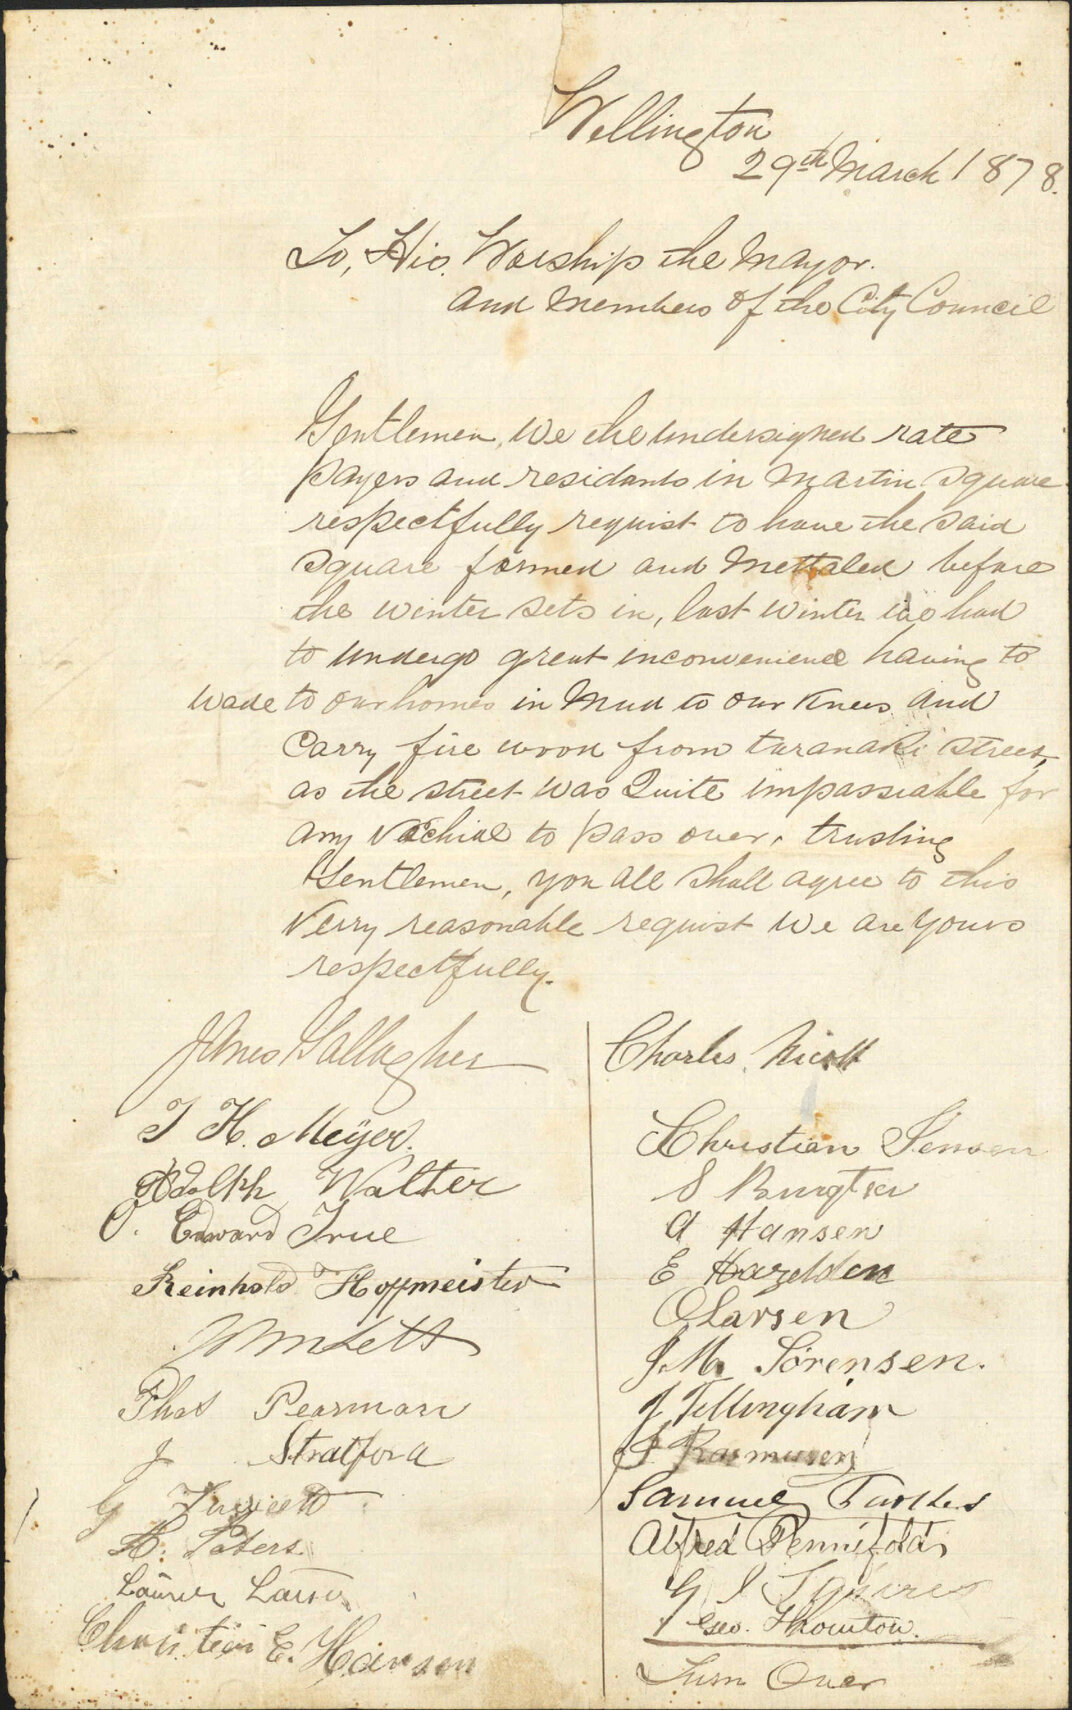 Wellington
29th March 1878.
To, His. Worship the Mayor.
and Members of the City Council
Gentlemen, We the undersigned rate
payers and residants in Martin square
respectfully requist to have the said
square formed and Mettaled before
the winter sets in, last winter we had
to undergo great inconvenience having to
wade to our homes in Mud to our Knees and
Carry fire wood from taranaki street,
as the street was Quite impassiable for
any to pass over, trusting
Gentlemen, you all shall agree to this
Verry reasonable requist We are yours
respectfully.
James Gallagher
J H. Meyer.
Adolph Walter
O. Edward True
Reinhold Hoffmeister
Wm Lett
Thos Pearman
J Stratford
G
H. Peters
Larsen
E. Hansen
Charles. Nicoll
Christian Jensen
S
A Hansen
E Hazelden
O Larsen
J. M. Sörensen.
J Tillingham
Rasmusen
Samuel
Alfred Pennifold
G I Squires
Geo. Thornton.
Turn Over